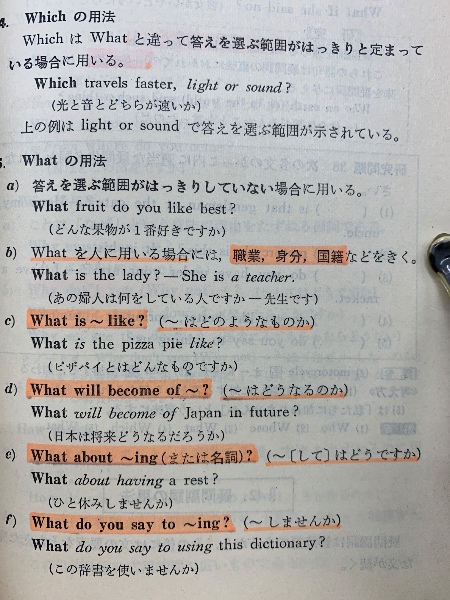 4. Which の用法
Which は What と違って答えを選ぶ範囲がはっきりと定まって
いる場合に用いる。
Which travels faster, light or sound?
(光と音とどちらが速いか)
上の例は light or sound で答えを選ぶ範囲が示されている。
5. What の用法
a) 答えを選ぶ範囲がはっきりしていない場合に用いる。
What fruit do you like best?
(どんな果物が1番好きですか)
b) What を人に用いる場合には, 職業, 身分, 国籍などをきく。
What is the lady? — She is a teacher.
(あの婦人は何をしている人ですか — 先生です)
c) What is ~ like? (~はどのようなものか)
What is the pizza pie like?
(ピザパイとはどんなものですか)
d) What will become of ~? (~はどうなるのか)
What will become of Japan in future?
(日本は将来どうなるだろうか)
e) What about ~ing (または名詞)? (~〔して〕はどうですか)
What about having a rest?
(ひと休みしませんか)
f) What do you say to ~ing? (~しませんか)
What do you say to using this dictionary?
(この辞書を使いませんか)